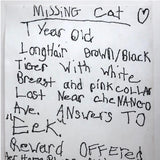 MISSING CAT
1 YEAR OLD
LONGHAIR BROWN/BLACK
TIGER WITH WHITE
BREAST AND PINK COLLAR
LAST NEAR CHENANGO
AVE. ANSWERS TO
"EEK."
REWARD OFFERED